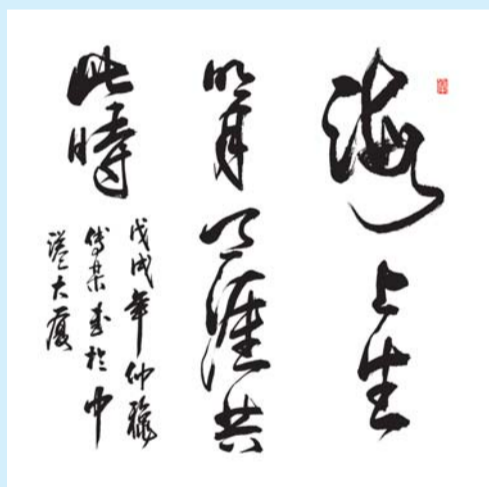 海上生
明月天涯共
此時
戊戌年仲秋
傅書於中
大廈